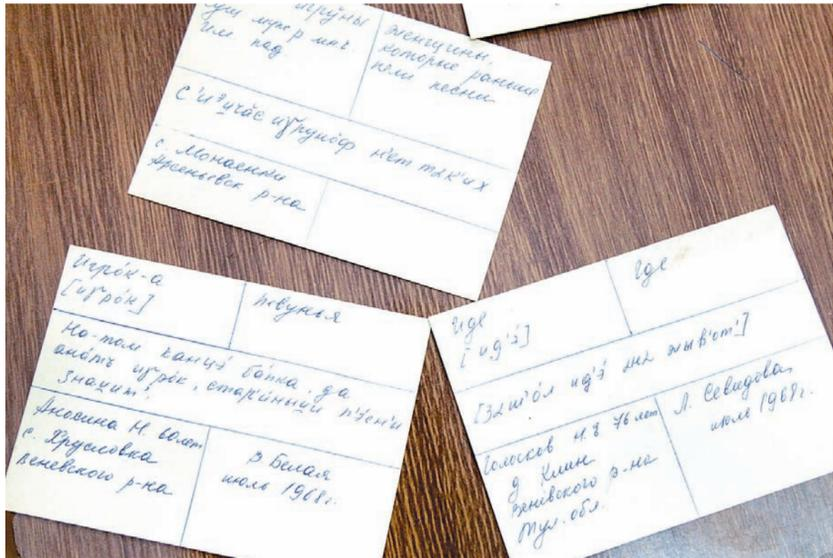 игруны
им над
женщины,
которые раньше
пели песни
н'ет так'их
с. Монаенки
Арсеньевск р-на
Игро́к-а
[иɣро́к]
певунья
На-том канцэ́ ба́пка, да
ана́тъ иɣро́к, стар'и́ныйи п'э́с'н'и
знаит.
Аносина Н. 60 лет
с. Хрусловка
Веневского р-на
В Белая
июль 1968г.
Иде
[ид'э́]
Где
[Зашо́л ид'э́ жыв'о́т.]
Голосков 76 лет
д Клин
Веневского р-на
Тул. обл.
Л. Севидова
июль 1968г.